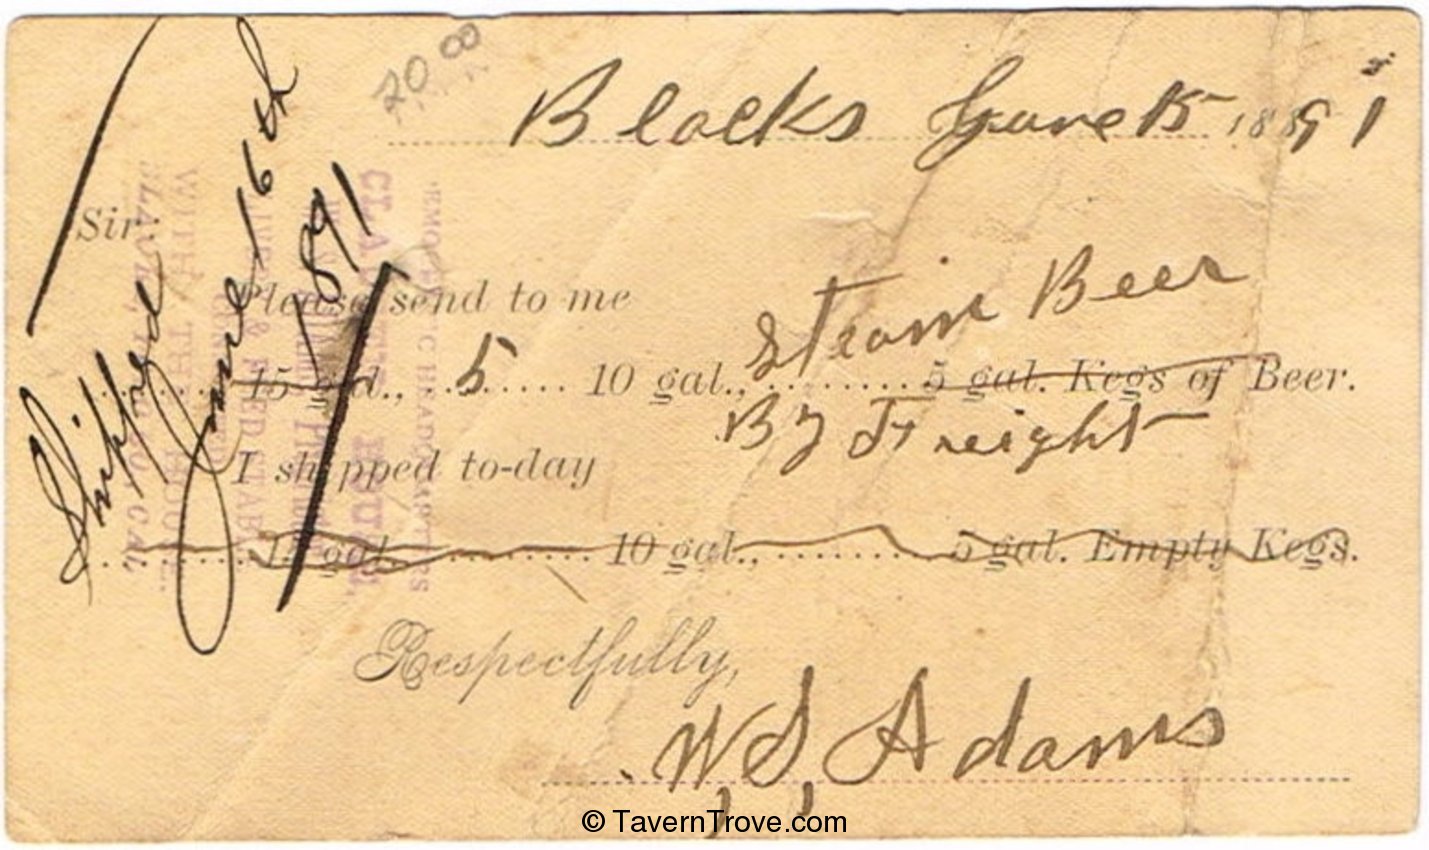 20.00
Blacks June 15 1891
Sir:
Please send to me
Steam Beer
15 gal., 5 10 gal., 5 gal. Kegs of Beer.
By Freight
I shipped to-day
15 gal. 10 gal., 5 gal. Empty Kegs.
Respectfully,
W, S, Adams
Shipped
June 16th
1891
WITH THE
& FEED STABLE
© TavernTrove.com